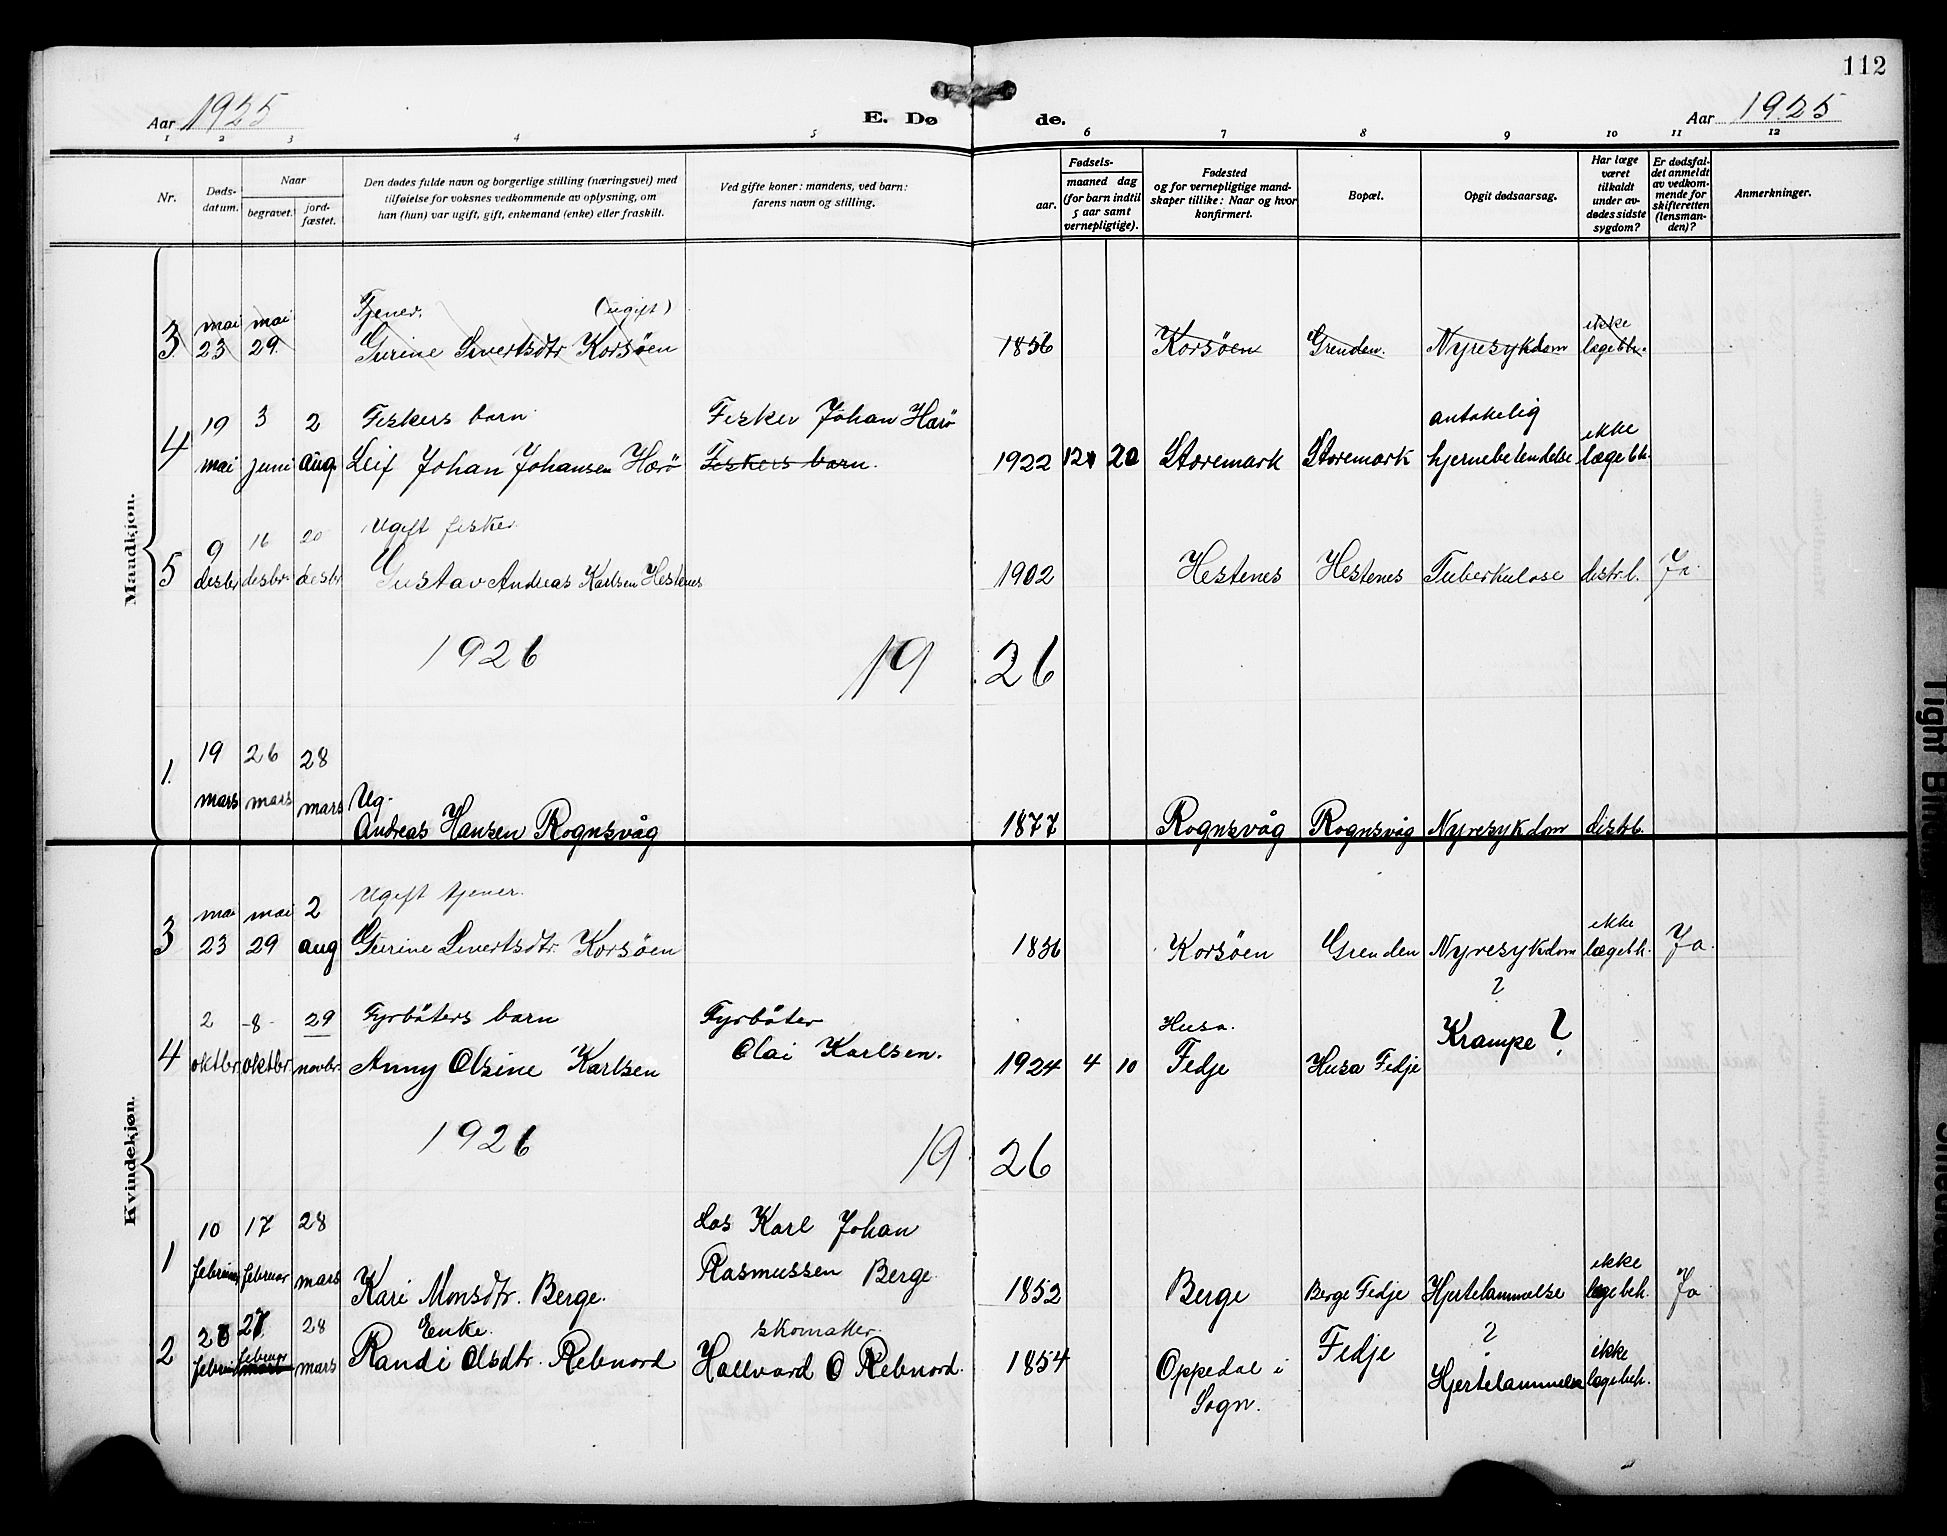 112
Aar 1925
E. Dø
de.
Aar 1925
1 2 3 4 5 6 7 8 9 10 11 12
Nr.
Døds-
datum.
Naar
begravet.
jord-
fæstet.
Den dødes fulde navn og borgerlige stilling (næringsvei) med
tilføielse for voksnes vedkommende av oplysning, om
han (hun) var ugift, gift, enkemand (enke) eller fraskilt.
Ved gifte koner: mandens, ved barn:
farens navn og stilling.
Fødsels-
aar.
maaned dag
(for barn indtil
5 aar samt
vernepligtige).
Fødested
og for vernepligtige mand-
skaper tillike: Naar og hvor
konfirmert.
Bopæl.
Opgit dødsaarsag.
Har læge
været
tilkaldt
under av-
dødes sidste
sygdom?
Er dødsfal-
det anmeldt
av vedkom-
mende for
skifteretten
(lensman-
den)?
Anmerkninger.
Mandkjøn.
mai mai Tjener. (ugift) ikke
3 23 29. Gurine Sivertsdtr Korsöen 1836 Korsöen Grenden. Nyresykdom lægebh.
19 3 2 Fiskers barn. Fisker Johan Harö antakelig ikke
4 mai juni aug Leif Johan Johansen Harö Fiskers barn. 1922 12 20 Storemark Storemark hjernebetendelse lægebh.
9 16 20 Ugift fisker.
5 desbr desbr. desbr Gustav Andreas Karlsen Hestenes 1902 Hestenes Hestenes Tuberkulose distr.l. Ja.
1926 1926
19 26 28
1. mars mars mars Ug.
Andreas Hansen Rognsvåg 1877 Rognsvåg Rognsvåg Nyresykdom distr.l.
Kvindekjøn.
mai mai 2 Ugift tjener. ikke
3 23 29 aug Gurine Sivertsdtr. Korsöen 1836 Korsöen Grenden Nyresykdom lægebh. Ja.
?
2 -8- 29 Fyrböters barn Fyrböter Husa.
4 oktbr oktbr. novbr. Anny Olsine Karlsen Olai Karlsen. 1924 4 10 Fedje Husa Fedje Krampe ?
1926 1926
10 17 28 Los Karl Johan ikke
1 februar februar mars Kari Monsdtr. Berge. Rasmussen Berge. 1852 Berge Berge Fedje Hjertelammelse lægebeh. Ja
27 28 Enke. skomaker. Fedje ? ikke
2 februar mars Randi Olsdtr. Rebnord Hallvard O Rebnord. 1854 Oppedal i Hjertelammelse lægebeh.
Sogn.
Tight Bind